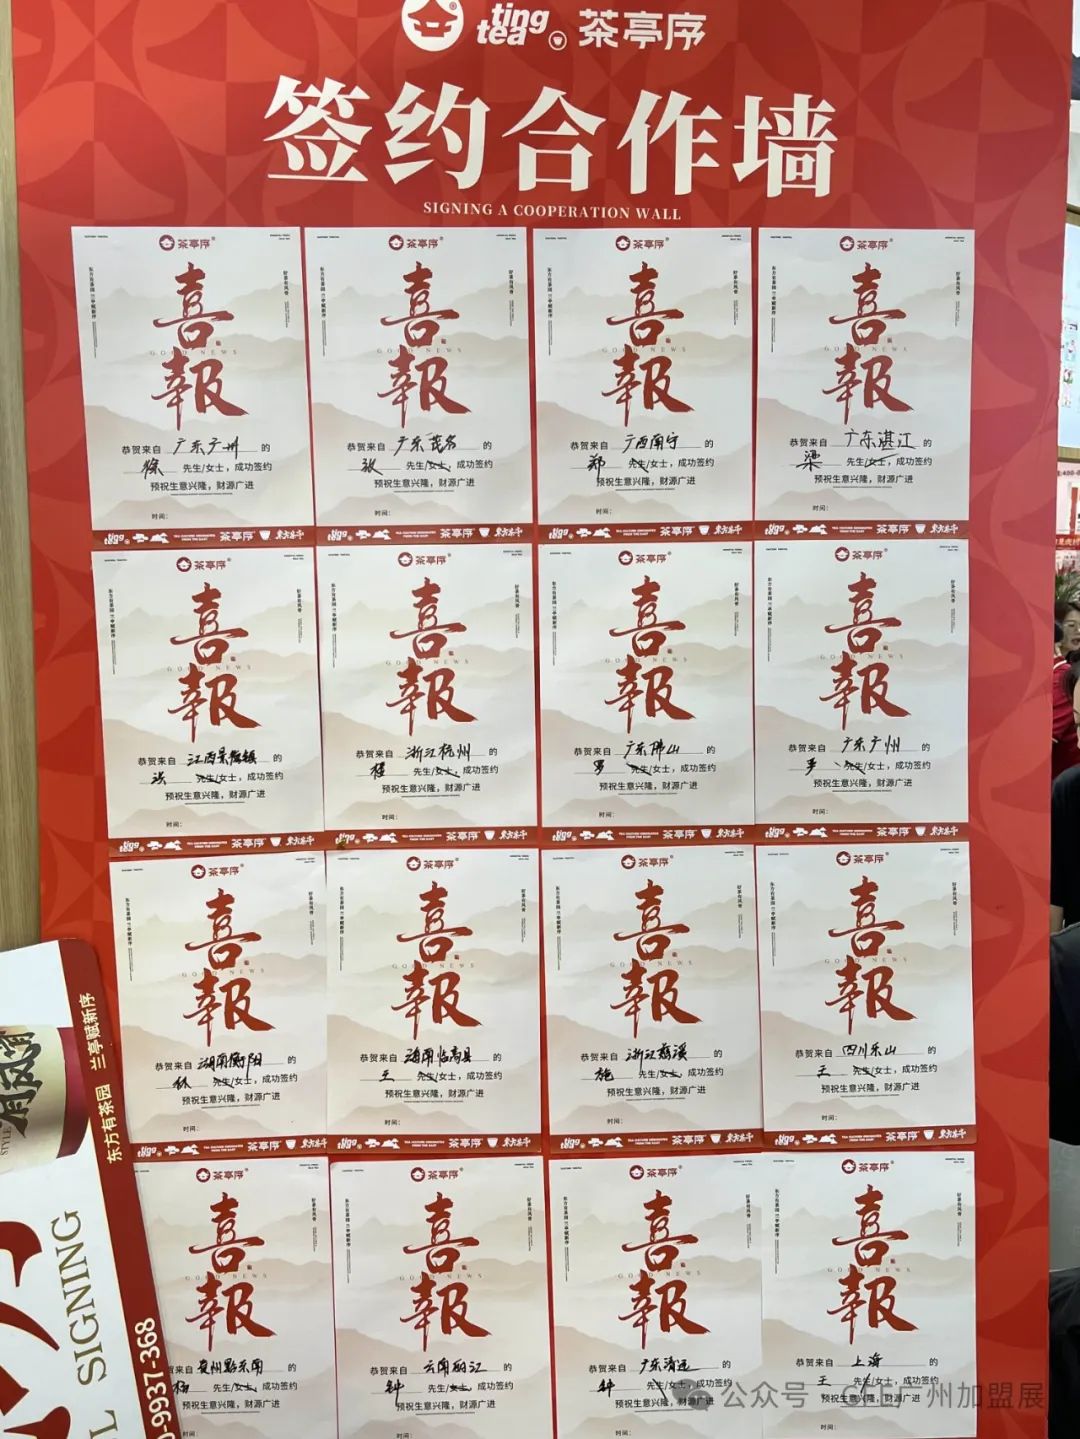 ting
tea 茶亭序
签约合作墙
SIGNING A COOPERATION WALL
茶亭序
喜報
GOOD NEWS
东方有茶园 兰亭赋新序
恭贺来自 广东广州 的
徐 先生/女士，成功签约
预祝生意兴隆，财源广进
时间：
茶亭序
喜報
GOOD NEWS
东方有茶园 兰亭赋新序
恭贺来自 广东茂名 的
张 先生/女士，成功签约
预祝生意兴隆，财源广进
时间：
茶亭序
喜報
GOOD NEWS
东方有茶园 兰亭赋新序
恭贺来自 广西南宁 的
郑 先生/女士，成功签约
预祝生意兴隆，财源广进
时间：
茶亭序
喜報
GOOD NEWS
东方有茶园 兰亭赋新序
恭贺来自 广东湛江 的
梁 先生/女士，成功签约
预祝生意兴隆，财源广进
时间：
茶亭序
喜報
GOOD NEWS
东方有茶园 兰亭赋新序
恭贺来自 江西景德镇 的
先生/女士，成功签约
预祝生意兴隆，财源广进
时间：
茶亭序
喜報
GOOD NEWS
东方有茶园 兰亭赋新序
恭贺来自 浙江杭州 的
程 先生/女士，成功签约
预祝生意兴隆，财源广进
时间：
茶亭序
喜報
GOOD NEWS
东方有茶园 兰亭赋新序
恭贺来自 广东佛山 的
罗 先生/女士，成功签约
预祝生意兴隆，财源广进
时间：
茶亭序
喜報
GOOD NEWS
东方有茶园 兰亭赋新序
恭贺来自 广东广州 的
先生/女士，成功签约
预祝生意兴隆，财源广进
时间：
茶亭序
喜報
GOOD NEWS
东方有茶园 兰亭赋新序
恭贺来自 湖南衡阳 的
林 先生/女士，成功签约
预祝生意兴隆，财源广进
时间：
茶亭序
喜報
GOOD NEWS
东方有茶园 兰亭赋新序
恭贺来自 海南临高县 的
王 先生/女士，成功签约
预祝生意兴隆，财源广进
时间：
茶亭序
喜報
GOOD NEWS
东方有茶园 兰亭赋新序
恭贺来自 浙江慈溪 的
施 先生/女士，成功签约
预祝生意兴隆，财源广进
时间：
茶亭序
喜報
GOOD NEWS
东方有茶园 兰亭赋新序
恭贺来自 四川乐山 的
王 先生/女士，成功签约
预祝生意兴隆，财源广进
时间：
茶亭序
喜報
GOOD NEWS
贺来自 贵州黔东南 的
杨 先生/女士，成功签约
预祝生意兴隆，财源广进
茶亭序
喜報
GOOD NEWS
东方有茶园 兰亭赋新序
恭贺来自 云南丽江 的
钟 先生/女士，成功签约
预祝生意兴隆，财源广进
时间：
茶亭序
喜報
GOOD NEWS
东方有茶园 兰亭赋新序
恭贺来自 广东清远 的
钟 先生/女士，成功签约
预祝生意兴隆，财源广进
时间：
茶亭序
喜報
GOOD NEWS
东方有茶园 兰亭赋新序
恭贺来自 上海 的
王 先生/女士，成功签约
预祝生意兴隆，财源广进
时间：
东方有茶园 兰亭赋新序
STYLE
SIGNING
0-9937-368
公众号 · CFE广州加盟展